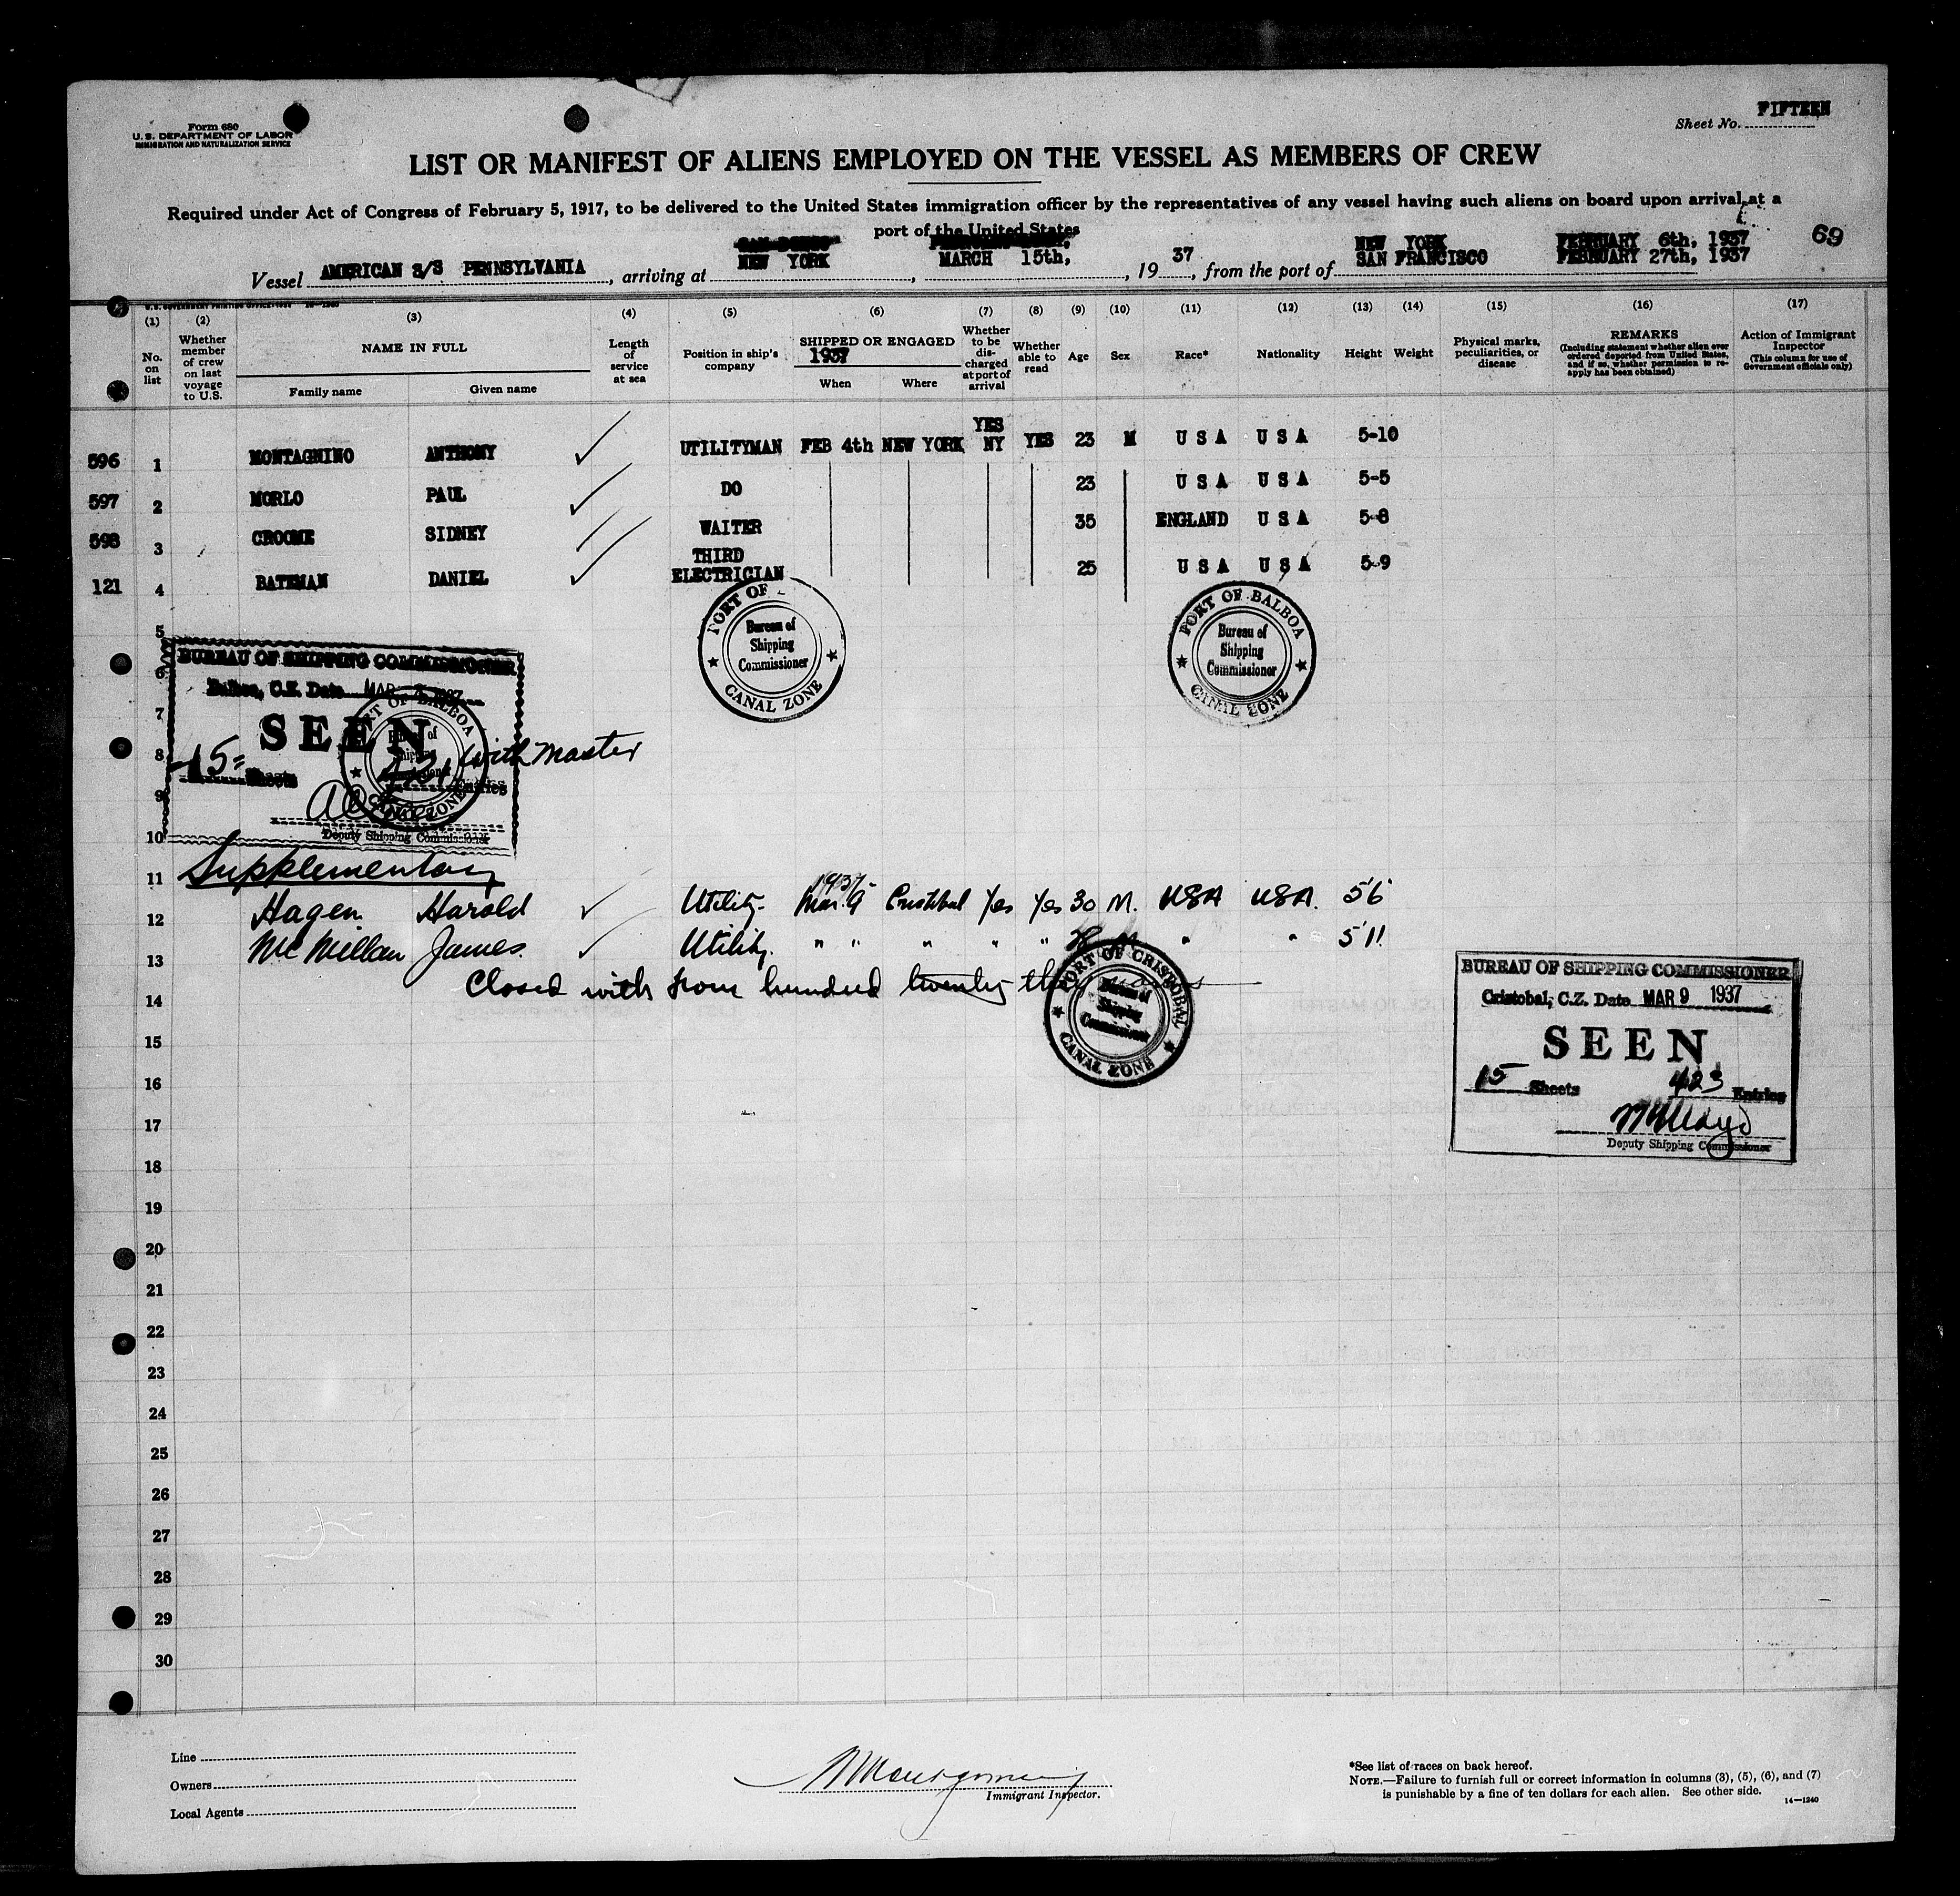 Form 680
U. S. DEPARTMENT OF LABOR
IMMIGRATION AND NATURALIZATION SERVICE
Sheet No. FIFTEEN
LIST OR MANIFEST OF ALIENS EMPLOYED ON THE VESSEL AS MEMBERS OF CREW
Required under Act of Congress of February 5, 1917, to be delivered to the United States immigration officer by the representatives of any vessel having such aliens on board upon arrival at a
port of the United States
69
NEW YORK FEBRUARY 6th, 1937
Vessel AMERICAN S/S PENNSYLVANIA, arriving at NEW YORK, MARCH 15th, 1937, from the port of SAN FRANCISCO FEBRUARY 27th, 1937
(1) (2) (3) (4) (5) (6) (7) (8) (9) (10) (11) (12) (13) (14) (15) (16) (17)
No. on list
Whether member of crew on last voyage to U.S.
NAME IN FULL
Family name Given name
Length of service at sea
Position in ship's company
SHIPPED OR ENGAGED
1937
When Where
Whether to be discharged at port of arrival
Whether able to read
Age
Sex
Race*
Nationality
Height
Weight
Physical marks, peculiarities, or disease
REMARKS
(Including statement whether alien ever ordered deported from United States, and if so, whether permission to reapply has been obtained)
Action of Immigrant Inspector
(This column for use of Government officials only)
596 1 MONTAGNINO ANTHONY UTILITYMAN FEB 4th NEW YORK YES NY YES 23 M U S A U S A 5-10
597 2 MORLO PAUL DO 23 U S A U S A 5-5
598 3 CROOME SIDNEY WAITER 35 ENGLAND U S A 5-8
121 4 BATEMAN DANIEL THIRD ELECTRICIAN 25 U S A U S A 5-9
PORT OF
Bureau of
Shipping
Commissioner
CANAL ZONE
PORT OF BALBOA
Bureau of
Shipping
Commissioner
CANAL ZONE
5
BUREAU OF SHIPPING COMMISSIONER
6
Balboa, C.Z. Date MAR 1937
7
SEEN
8
15 Sheets 421 Entries with master
9
Deputy Shipping Commissioner
PORT OF BALBOA
CANAL ZONE
10
11 Supplementary
12 Hagen Harold Utility 1937 Mar. 9 Cristobal Yes Yes 30 M. USA USA. 5'6
13 McMillan James. Utility. " " " " " " " 5'11
14 Closed with four hundred twenty
PORT OF CRISTOBAL
Bureau of
Shipping
Commissioner
CANAL ZONE
BUREAU OF SHIPPING COMMISSIONER
Cristobal, C.Z. Date MAR 9 1937
SEEN
15 Sheets 423 Entries
Deputy Shipping Commissioner
15
16
17
18
19
20
21
22
23
24
25
26
27
28
29
30
Line
Owners
Local Agents
Immigrant Inspector.
*See list of races on back hereof.
NOTE.—Failure to furnish full or correct information in columns (3), (5), (6), and (7)
is punishable by a fine of ten dollars for each alien. See other side.
14—1240